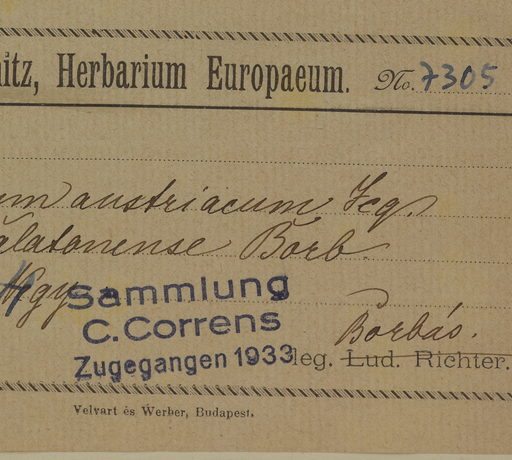 itz, Herbarium Europaeum. No. 7305
um austriacum Jcq.
alatonense Borb.
Sammlung
C. Correns
Zugegangen 1933
Borbás.
leg. Lud. Richter.
Velvart és Werber, Budapest.